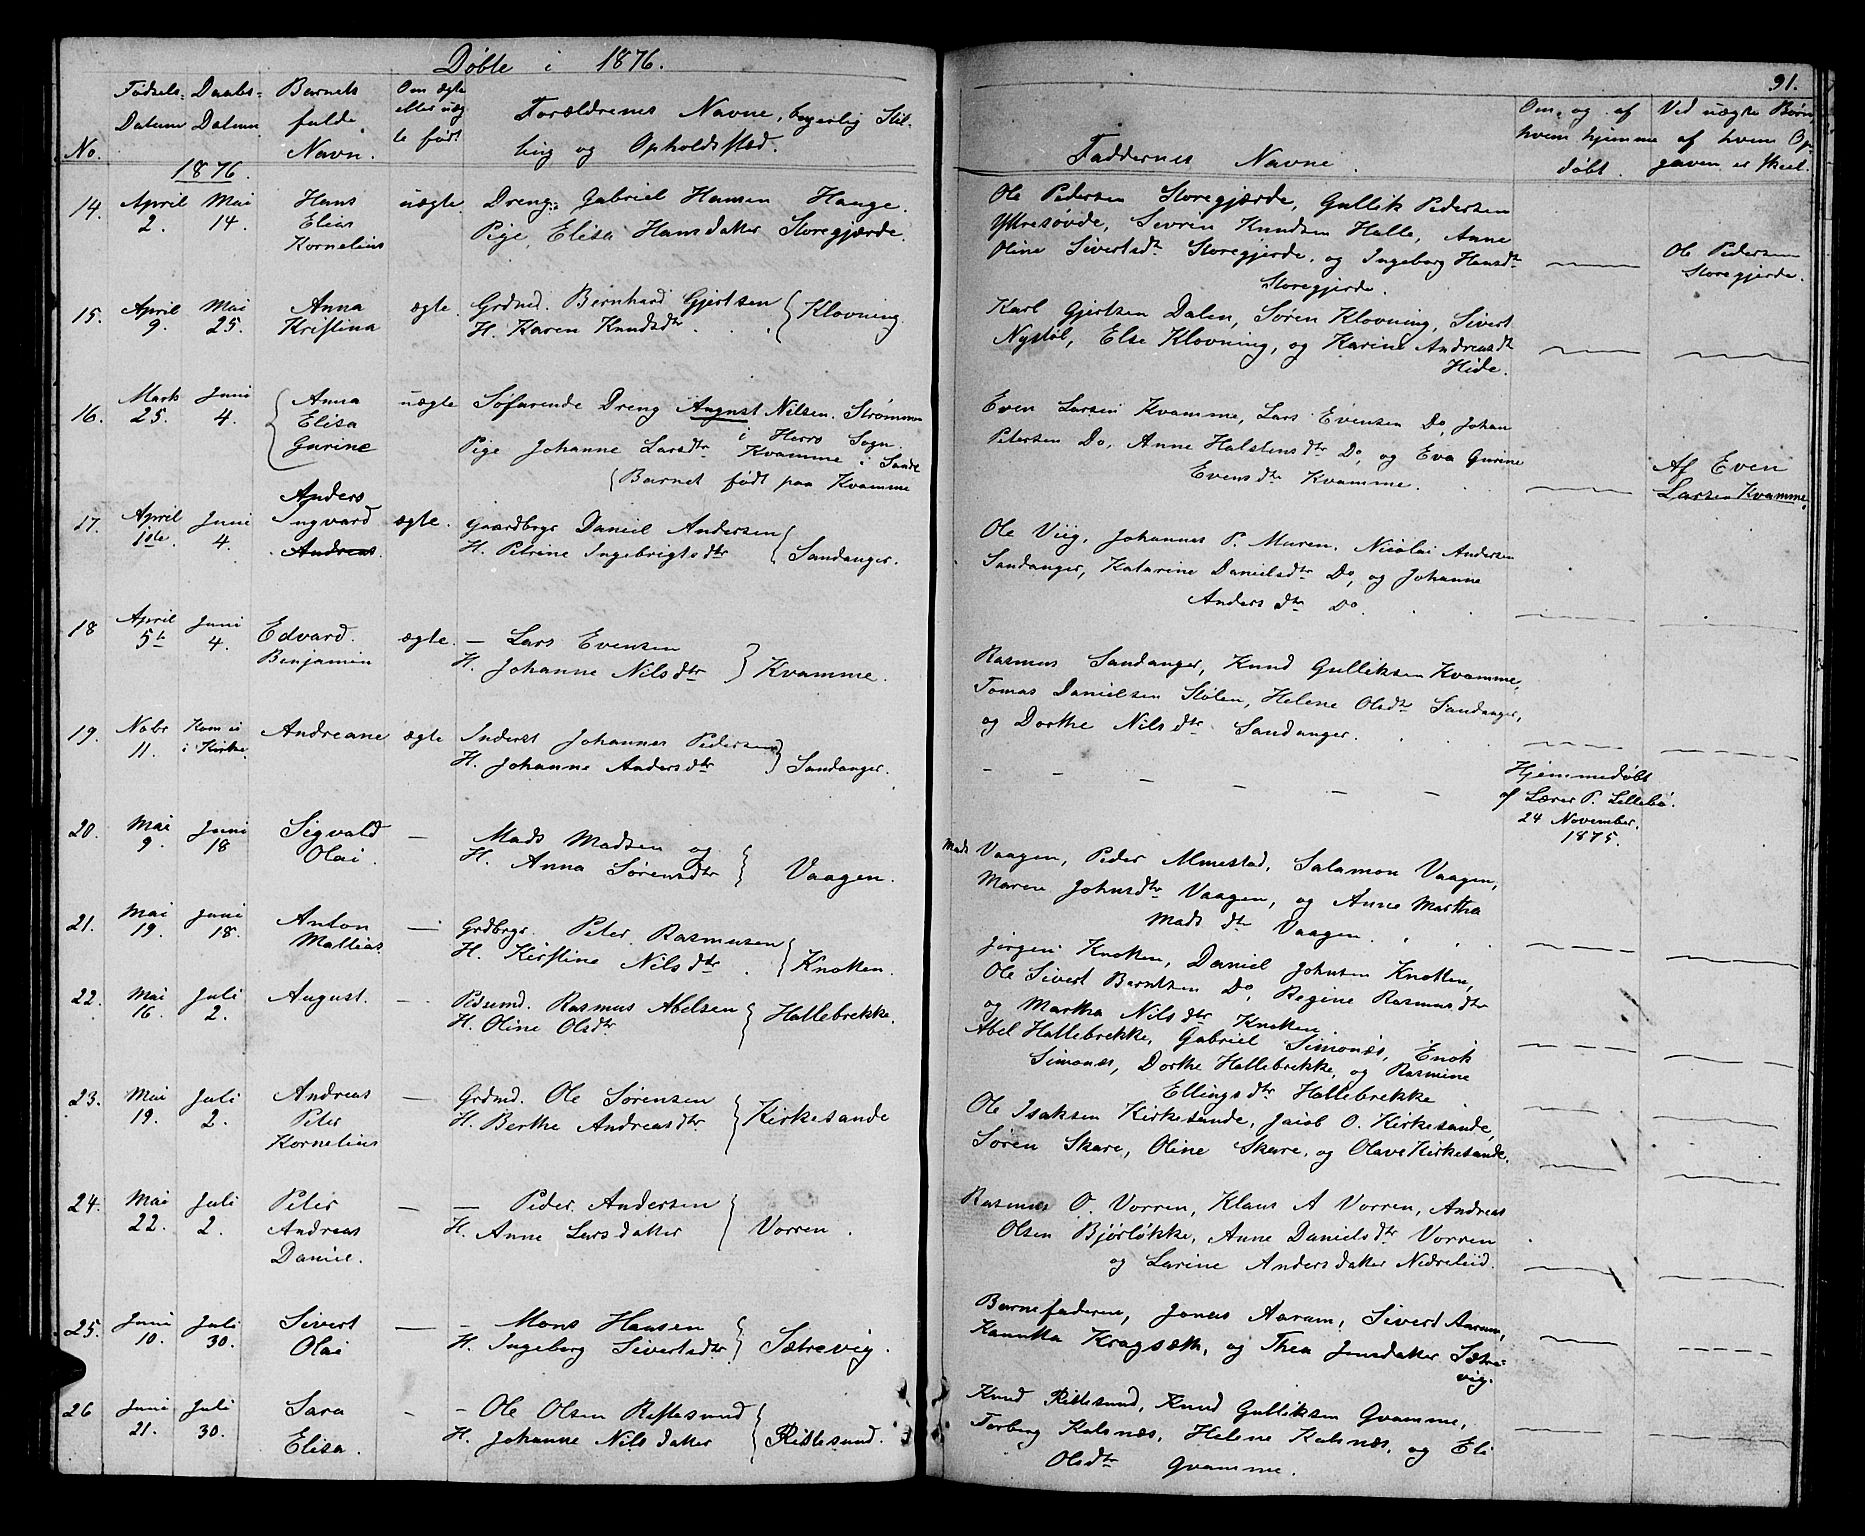 Døbte i 1876.
91.
No.
Fødsels-
Datum
Daabs-
Datum
Barnets
fulde
Navn.
Om ægte
eller uæg
te født.
Forældrenes Navne, borgerlig Stil-
ling og Opholdssted.
Faddernes Navne
Om og af
hvem hjemme
døbt.
Ved uægte Børn
af hvem Op-
gaven er skeet.
1876.
14. April 2. Mai 14.
Hans
Elias
Kornelius
uægte.
Dreng: Gabriel Hansen Hauge.
Pige, Elisa Hansdatter Storegjærde.
Ole Pedersen Storegjærde, Gullik Pedersen
Yttresøvde, Sevrin Knudsen Halle, Anne
Oline Sivertsdtr Storegjerde, og Ingeborg Hansdtr
Storegjerde.
Ole Pedersen
Storegjerde.
15. April 9. Mai 25.
Anna
Kristina
ægte.
Grdmd. Bernhard Gjertsen
H. Karen Knudsdtr
Klovning.
Karl Gjertsen Dalen, Søren Klovning, Sivert
Nystøl, Else Klovning, og Karine Andreasdtr
Hide.
16. Marts 25. Juni 4.
Anna
Elisa
Gurine
uægte
Søfarende Dreng August Nilsen. Strømmen
i Herrø Sogn.
Pige Johanne Larsdtr Kvamme i Sande
Barnet født paa Kvamme
Even Larsen Kvamme, Lars Evensen Do, Johan
Petersen Do, Anne Halstensdtr Do, og Eva Gurine
Evensdtr Kvamme.
Af Even
Larsen Kvamme.
17. April 1ste. Juni 4.
Anders
Ingvard
Andreas.
ægte.
Gaardbrgr Daniel Andersen
H. Petrine Ingebrigtsdtr
Sandanger.
Ole Viig, Johannes P. Muren, Nicolai Andersen
Sandanger, Katarine Danielsdtr Do, og Johanne
Andersdtr Do.
18 April 5te Juni 4.
Edvard.
Benjamin
ægte.
— Lars Evensen
H. Johanne Nilsdtr
Kvamme.
Rasmus Sandanger, Knud Gulliksen Kvamme,
Tomas Danielsen Stølen, Helene Olsdtr Sandanger,
og Dorthe Nilsdtr Sandanger.
19. Nobr 11. Kom ei
i Kirke.
Andreane
ægte
Inderst Johannes Pedersen
H. Johanne Andersdtr
Sandanger.
Hjemmedøbt
af Lærer P. Lillebø.
24 November.
1875.
20. Mai 9. Juni 18
Sigvald
Olai.
—
Mads Madsen og
H. Anna Sørensdtr
Vaagen.
Mads Vaagen, Peder Almestad, Salamon Vaagen,
Maren Johnsdtr Vaagen, og Anne Martha
Madsdtr Vaagen.
21. Mai 19. Juni 18.
Anton
Mathias
—
Grdbrgr. Peter Rasmusen
H. Kirstine Nilsdtr
Knotten.
Jørgen Knotten, Daniel Johnsen Knotten,
Ole Sivert Berntsen Do, Regine Rasmusdtr
og Martha Nilsdtr Knotten.
22. Mai 16. Juli 2.
August.
—
Pdsmd. Rasmus Abelsen
H. Oline Olsdtr
Hallebrekke.
Abel Hallebrekke, Gabriel Simonæs, Enok
Simonæs, Dorthe Hallebrekke, og Rasmine
Ellingsdtr Hallebrekke
23. Mai 19. Juli 2.
Andreas
Peter
Kornelius
—
Grdmd. Ole Sørensen
H. Berthe Andreasdtr
Kirkesande
Ole Isaksen Kirkesande, Jacob O. Kirkesande,
Søren Skare, Oline Skare, og Olave Kirkesande.
24. Mai 22. Juli 2.
Peter
Andreas
Daniel.
—
— Peder Andersen
H. Anne Larsdatter
Vorren.
Rasmus O. Vorren, Klaus A Vorren, Andreas
Olsen Bjørløkke, Anne Danielsdtr Vorren
og Larine Andersdatter Nedreleid.
25. Juni 10. Juli 30.
Sivert
Olai
—
- Mons Hansen
H. Ingeborg Sivertsdtr
Sætrevig.
Barnefaderen, Jonas Aaram, Siverd Aaram,
Kanutta Kragsæth, og Thea Jensdatter Sætre-
vig.
26 Juni 21. Juli 30.
Sara
Elisa.
-
- Ole Olsen Riftesund
H. Johanne Nilsdatter
Riftesund.
Knud Riftesund, Knud Gulliksen Gvamme,
Torberg Kalsnæs, Helene Kalsnæs, og Eli
Olsdtr Gvamme.